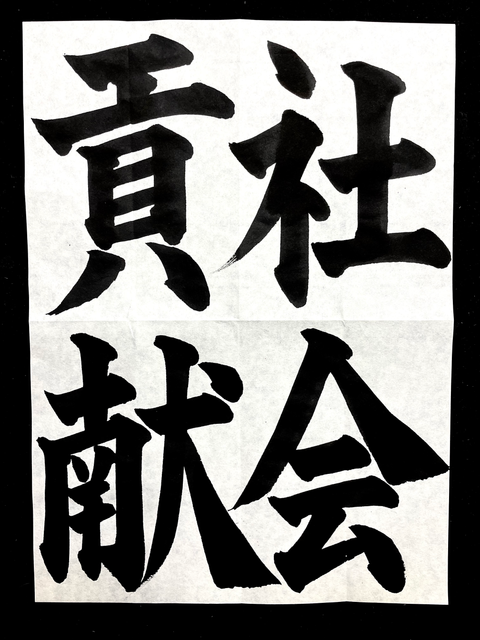 社会
貢献